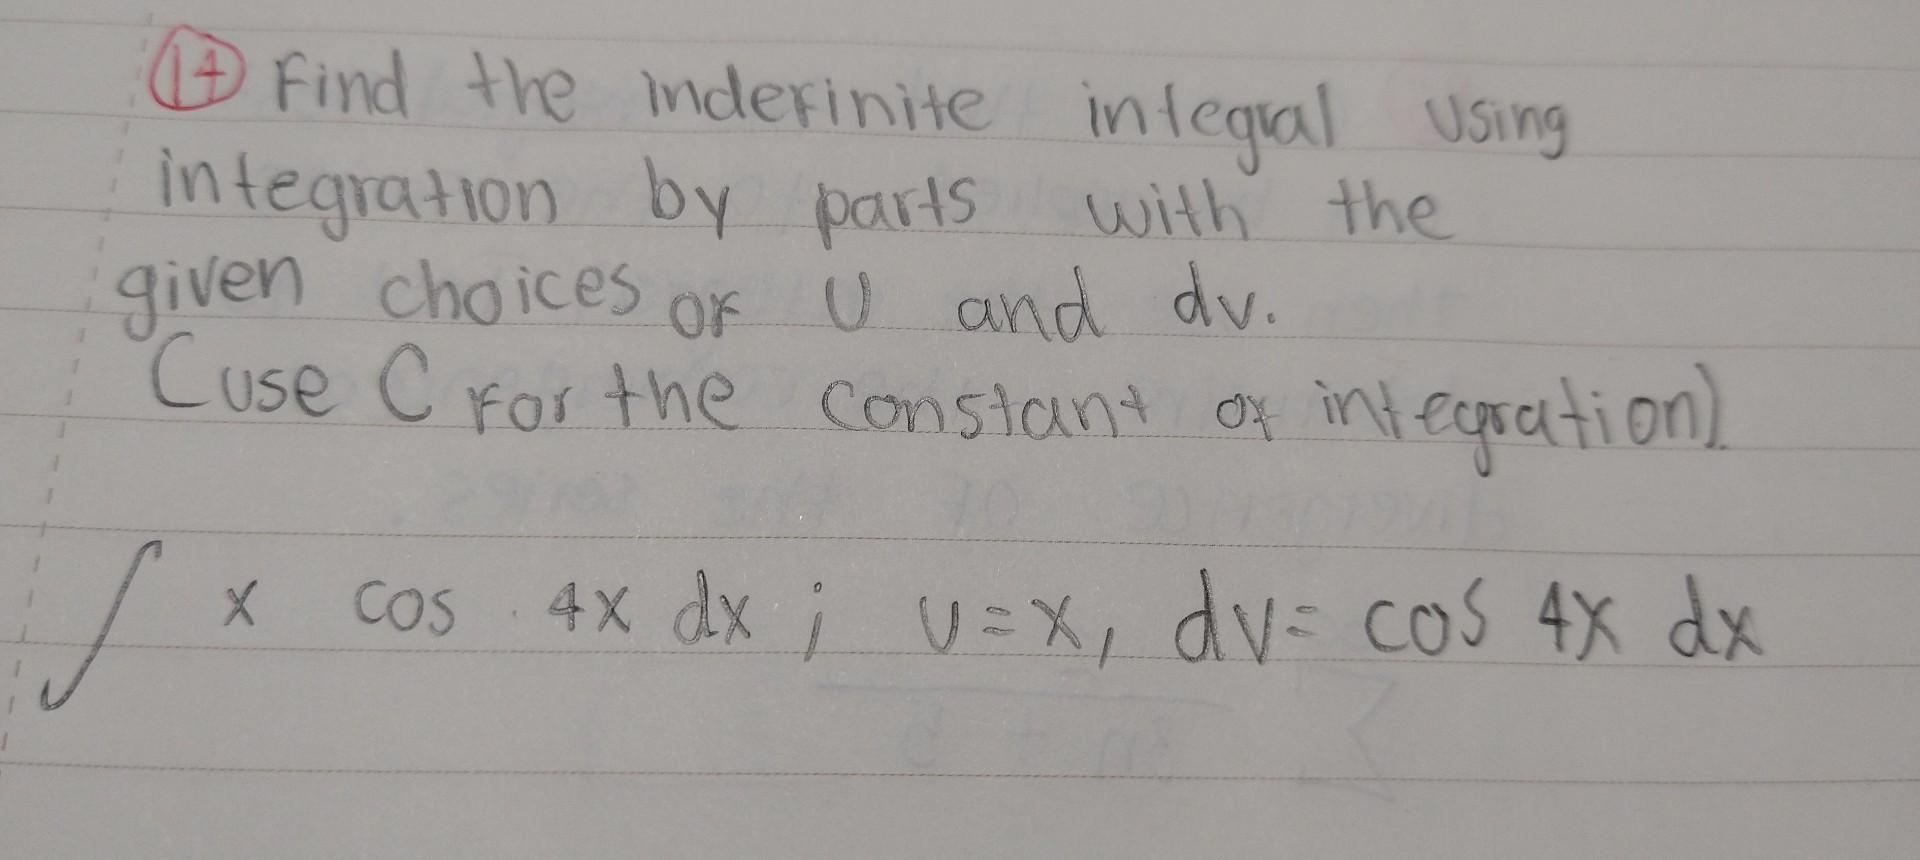 14 Find the inderinite integral using
integration by parts with the
given choices of U and dv.
(use C for the constant of integration)
∫ x cos 4x dx ; u=x, dv= cos 4x dx